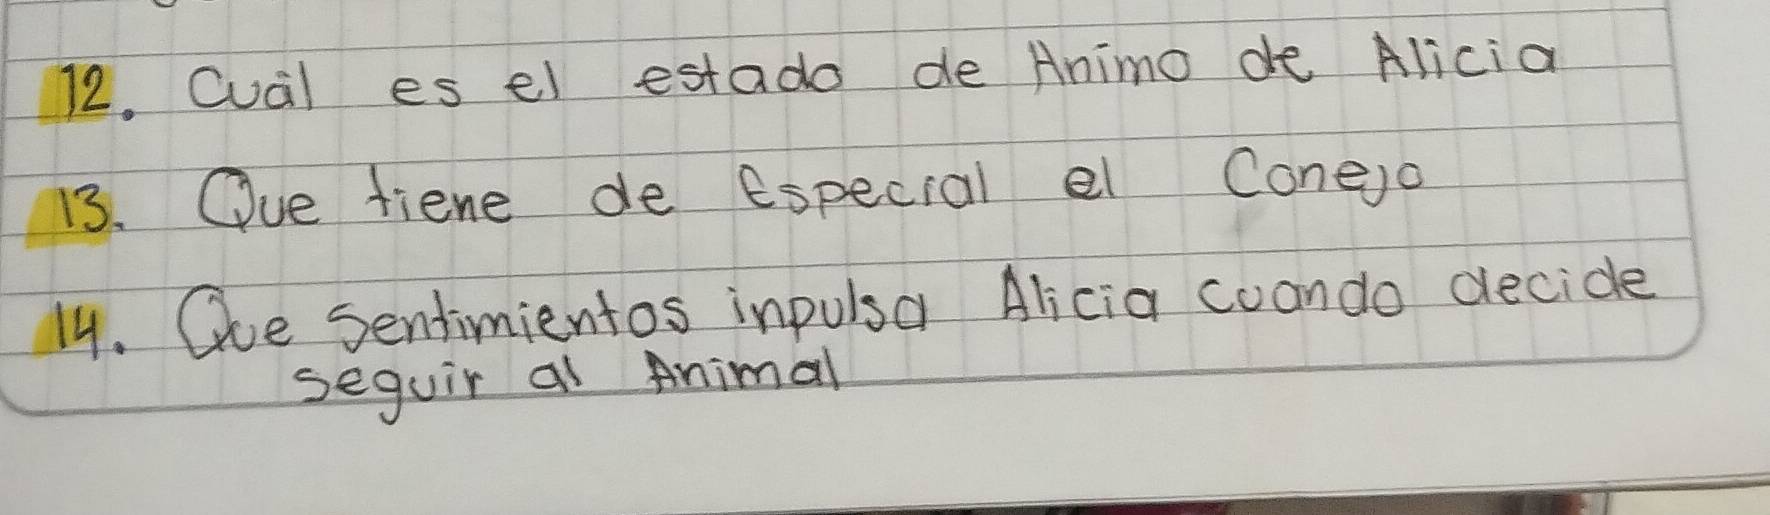 12. Cuál es el estado de Animo de Alicia
13. Que tiene de Especial el Conejo
14. Que Sentimientos inpulsa Alicia cuando decide
seguir al Animal